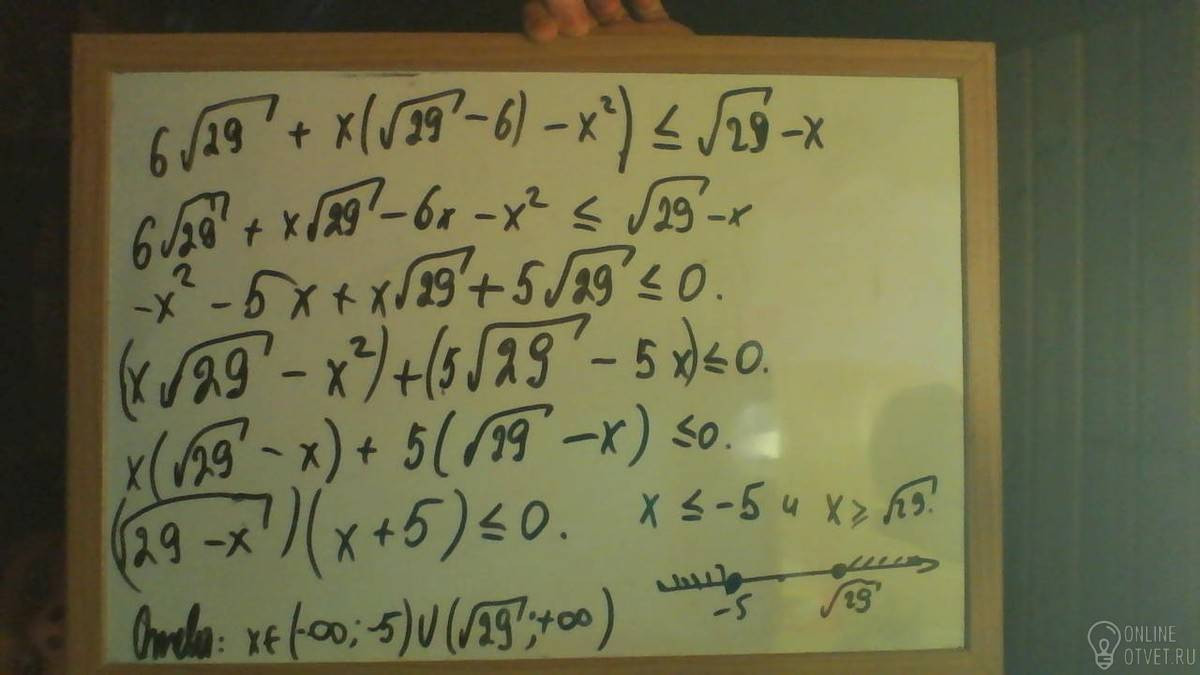 6√29 + x(√29 - 6) - x²) ≤ √29 - x
6√29 + x√29 - 6x - x² ≤ √29 - x
-x² - 5x + x√29 + 5√29 ≤ 0.
(x√29 - x²) + (5√29 - 5x) ≤ 0.
x(√29 - x) + 5(√29 - x) ≤ 0.
(√29 - x)(x + 5) ≤ 0.
x ≤ -5 и x ≥ √29.
-5 √29
Ответ: x ∈ (-∞; -5) U (√29; +∞)
ONLINE
OTVET.RU